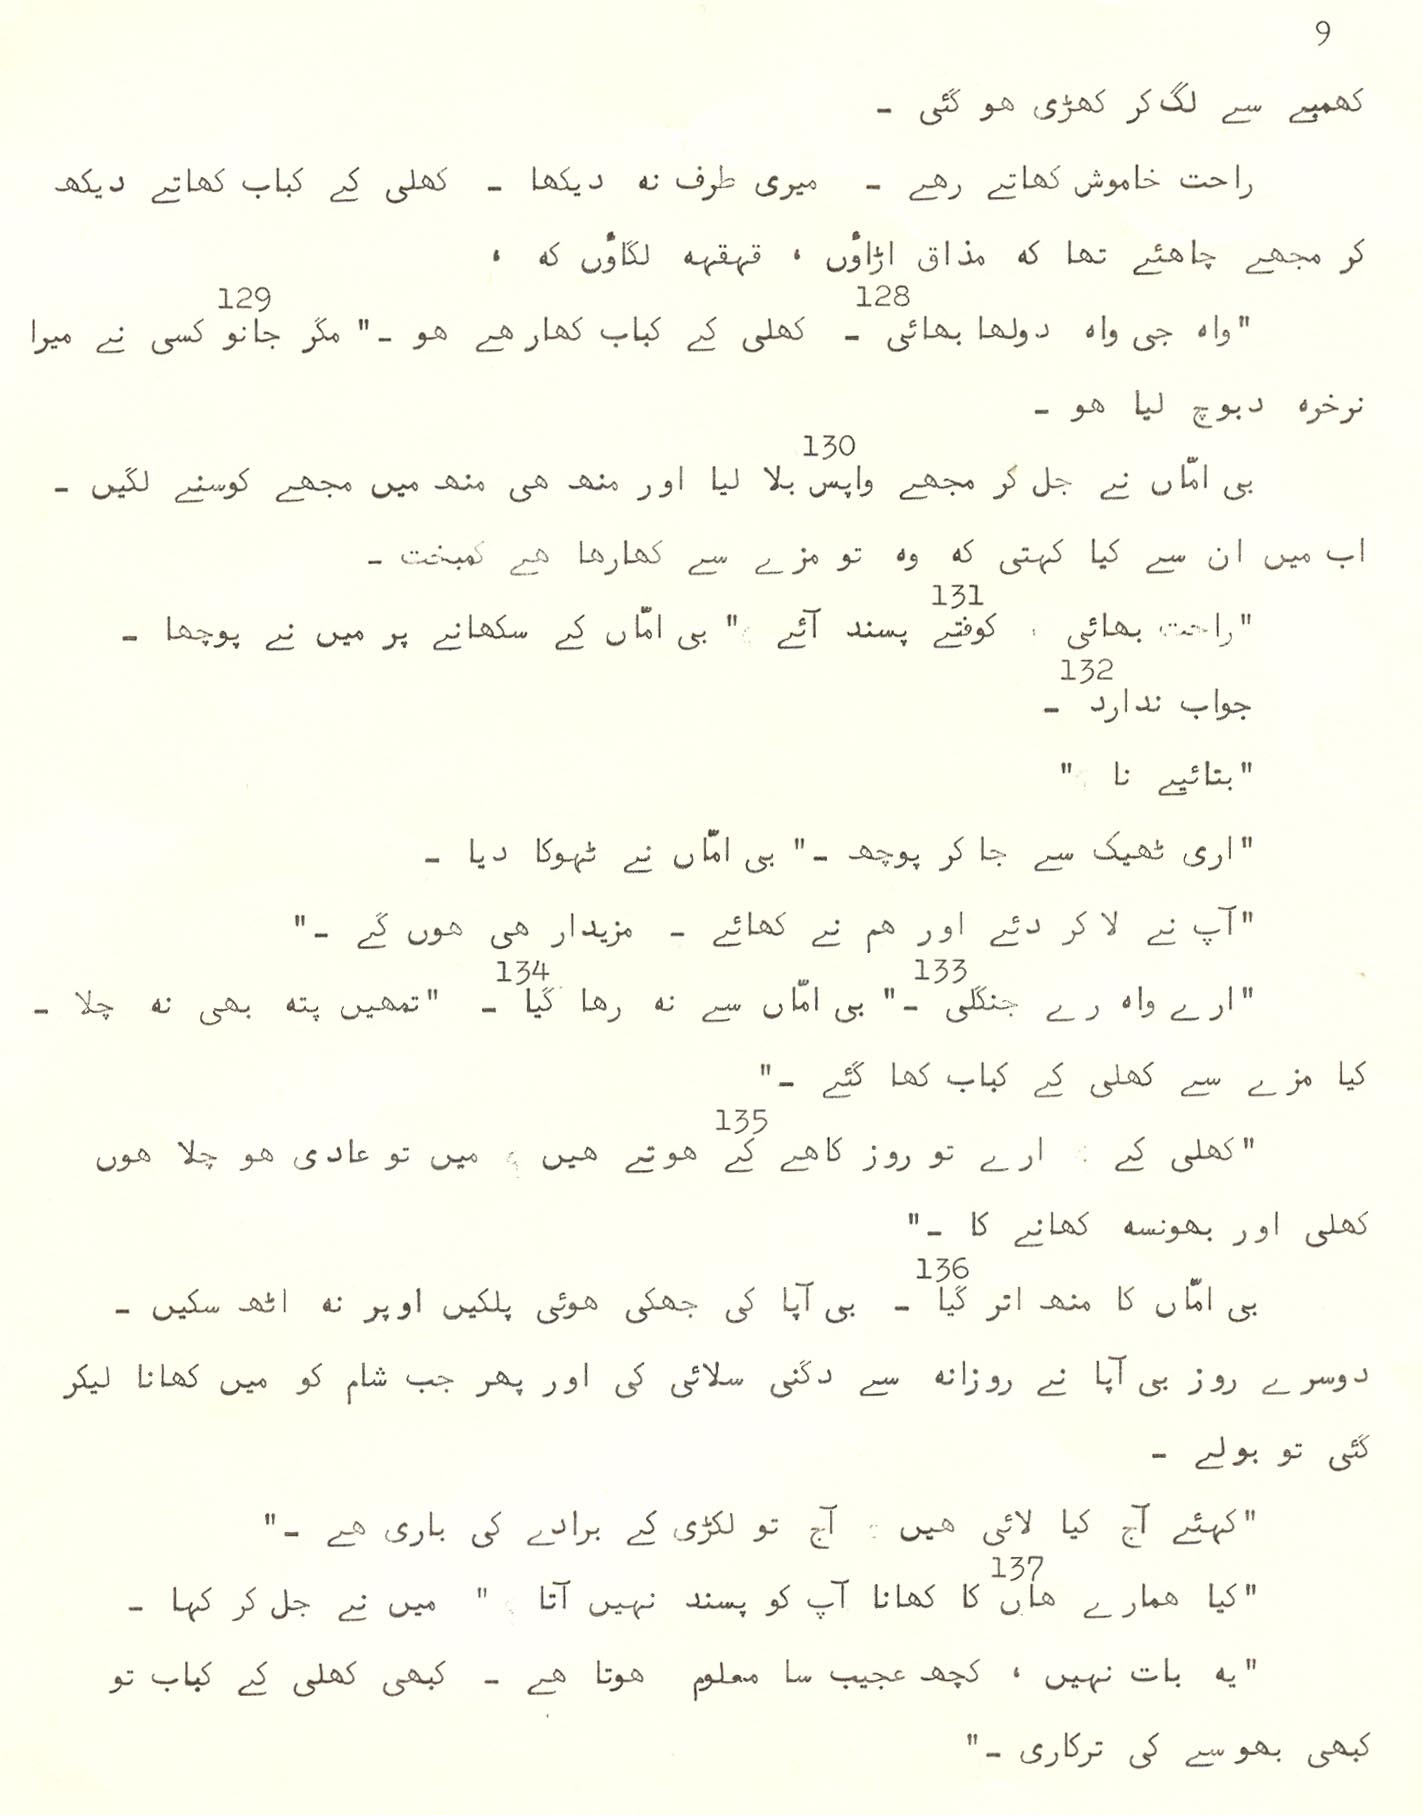 9
کھمبے سے لگ کر کھڑی ھو گئی ۔
راحت خاموش کھاتے رھے ۔ میری طرف نہ دیکھا ۔ کھلی کے کباب کھاتے دیکھ
کر مجھے چاھئے تھا کہ مذاق اڑاوٴں ، قہقہہ لگاوٴں کہ ،
128 129
"واہ جی واہ دولھا بھائی ۔ کھلی کے کباب کھارھے ھو ۔" مگر جانو کسی نے میرا
نرخرہ دبوچ لیا ھو ۔
130
بی امّاں نے جل کر مجھے واپس بلا لیا اور منھ ھی منھ میں مجھے کوسنے لگیں ۔
اب میں ان سے کیا کہتی کہ وہ تو مزے سے کھارھا ھے کمبخت ۔
131
"راحت بھائی ، کوفتے پسند آئے ؟" بی امّاں کے سکھانے پر میں نے پوچھا ۔
132
جواب ندارد ۔
"بتائیے نا ؟"
"اری ٹھیک سے جا کر پوچھ ۔" بی امّاں نے ٹہوکا دیا ۔
"آپ نے لا کر دئے اور ھم نے کھائے ۔ مزیدار ھی ھوں گے ۔"
133 134
"ارے واہ رے جنگلی ۔" بی امّاں سے نہ رھا گیا ۔ "تمھیں پتہ بھی نہ چلا ۔
کیا مزے سے کھلی کے کباب کھا گئے ۔"
135
"کھلی کے ؟ ارے تو روز کاھے کے ھوتے ھیں ؟ میں تو عادی ھو چلا ھوں
کھلی اور بھونسہ کھانے کا ۔"
136
بی امّاں کا منھ اتر گیا ۔ بی آپا کی جھکی ھوئی پلکیں اوپر نہ اٹھ سکیں ۔
دوسرے روز بی آپا نے روزانہ سے دگنی سلائی کی اور پھر جب شام کو میں کھانا لیکر
گئی تو بولے ۔
"کہئے آج کیا لائی ھیں ؟ آج تو لکڑی کے برادے کی باری ھے ۔"
137
"کیا ھمارے ھاں کا کھانا آپ کو پسند نہیں آتا ؟" میں نے جل کر کہا ۔
"یہ بات نہیں ، کچھ عجیب سا معلوم ھوتا ھے ۔ کبھی کھلی کے کباب تو
کبھی بھوسے کی ترکاری ۔"